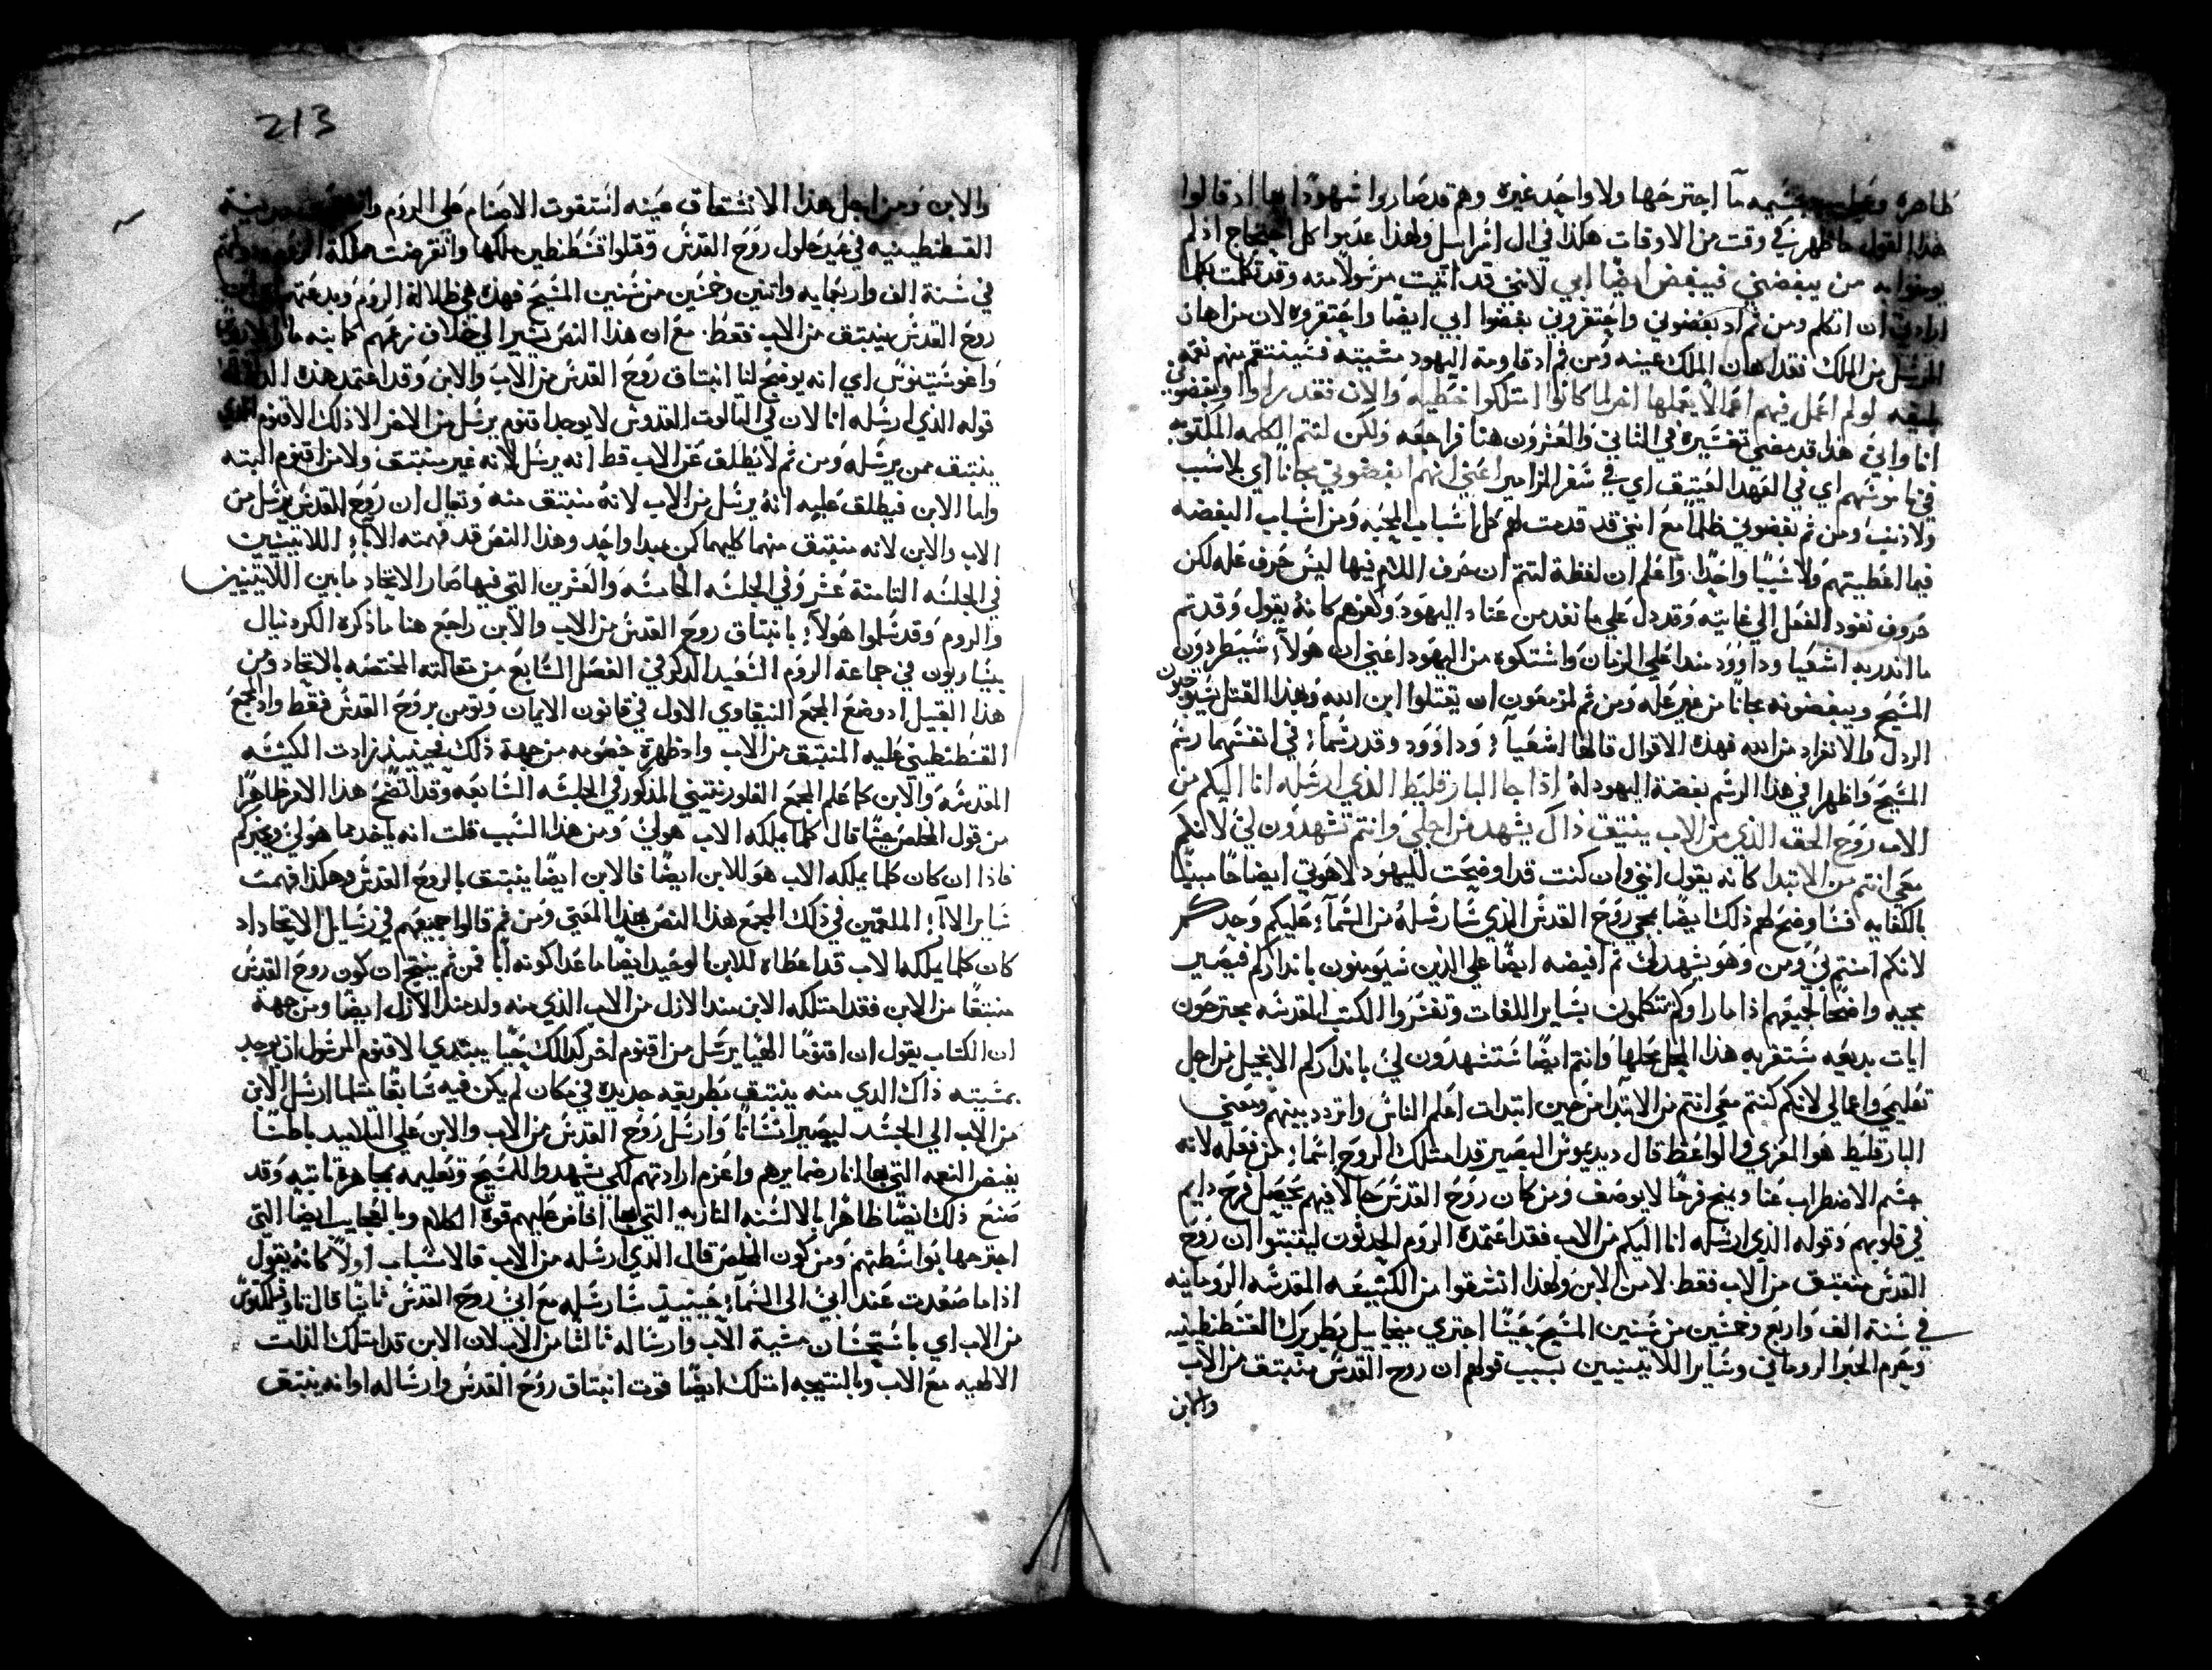 ظاهره وعظيمه جسيمه ما اجترحها ولا واحد غيره وهم قد صاروا شهودًا بها اد قالوا
هذا القول ما ظهر في وقت من الاوقات هكذا في ال اسراىيل ولهذا عدبوا كل احتجاج اذ لم
يومنوا به من يبغضني فيبغض ايضًا ابي لانني قد اتيت مرسولا منه وقد تكلمت كلما
ارادني ان اتكلم ومن ثم اد بغضوني واحتقروني بغضوا ابي ايضًا واحتقروه لان من اهان
المرسل من الملك فقد اهان الملك عينه ومن ثم اد قاومته اليهود مشيته فسينتقم منهم نقمه
بليغه لو لم اعمل فيهم اعمالا يعملها اخر لما كانوا امتلكوا خطيه والان فقد راوا وبغضوني
انا وابي هذا قد مضي تفسيره في الثاني والعشرون هنا فراجعه ولكن لتتم الكلمه المكتوبه
في ناموسهم اي في العهد العتيق اي في سفر المزامير اعني انهم ابغضوني مجانًا اي بلا سبب
ولا ذنب ومن ثم بغضوني ظلمًا مع انني قد قدمت لهم كل اسباب المحبه ومن اسباب البغضه
فيما اعطيتهم ولا سببًا واحدًا واعلم ان لفظة لتتم ان حرف اللام فيها ليس حرف عله لكن
حروف نفود الفعل الي غايته وقد دل علي ما نفد من عناد اليهود وكفرهم كانه يقول وقد تم
ما اندر به اشعيا وداوود مند اعلي الزمان واشتكوه من اليهود اعني ان هولاء سيطردون
المسيح ويبغضونه مجانًا من غير عله ومن ثم لمزمعون ان يقتلوا ابن الله وبهذا القتل سيوجبون
الردل والانفراد من الله فهذه الاقوال قالها اشعياء وداوود وقد رسماء في انفسهما رسم
المسيح واظهرا في هذا الرسم بغضة اليهود له اذا جا البارقليط الذي ارسله انا اليكم من
الاب روح الحق الذي من الاب ينبتق ذاك يشهد من اجلي وانتم تشهدون لي لانكم
معي انتم من الابتدا كانه يقول انني وان كنت قد اوضحت لليهود لاهوتي ايضاحًا مبينًا
بالكفايه فساوضح لهم ذلك ايضًا بمجي روح القدس الذي سارسله من السماء عليكم وحدكم
لانكم امنتم بي ومن وهو يشهد لي ثم افيضه ايضًا علي الدين سيومنون باندراركم فيصير
مجيه واضحًا لجميعهم اذا ما راوكم تتكلمون بساير اللغات وتفسروا الكتب المقدسه مجترحون
ايات بديعه ستقر به هذا المحل محلها وانتم ايضًا ستشهدون لي باندراركم الانجيل من اجل
تعليمي واعمالي لانكم كنتم معي انتم من الابتدا من حين ابتدات اعلم الناس واتردد بينهم ومعني
البارقليط هو المعزي والواعظ قال ديديموس البصير قد امتلك الروح اسما من فعله لانه
حسم الاضطراب عنا ويمنح فرحًا لا يوصف ومن كان روح القدس حالا فيهم يحصل فرح دايم
في قلوبهم وقوله الذي ارسله انا اليكم من الاب فقد اعتمده الروم الحديثون ليتبتوا ان روح
القدس منبتق من الاب فقط لا من الابن ولهذا انشقوا من الكنيسه المقدسه الرومانيه
في سنة الف واربع وخمسين من سنين المسيح حينًا اجتري ميخاييل بطريرك القسطنطينيه
وحرم الحبر الروماني وساير اللاتينيين بسبب قولهم ان روح القدس منبتق من الاب
والابن
213
والابن ومن اجل هذا الانشقاق عينه استقوت الاصنام علي الروم مدينة
القسطنطينيه في عيد حلول روح القدس وقتلوا قسطنطين ملكها وانقرضت مملكة الروم
في سنة الف واربعمايه واتنين وخمسين من سنين المسيح فهذه هي ظلالة الروم وبدعتهم
روح القدس ينبتق من الاب فقط مع ان هذا النص يشير الي خلاف زعمهم كما بينه مار
واغوستينوس اي انه يوضح لنا انبتاق روح القدس من الاب والابن وقد اعتمد هذه
قوله الذي ارسله انا لان في التالوت القدوس لا يوجد اقنوم يرسل من الاخر الا ذلك الاقنوم الدي
ينبتق ممن يرسله ومن ثم لا يطلق عن الاب قط انه يرسل لانه غير منبتق ولا من اقنوم البته
واما الابن فيطلق عليه انه يرسل من الاب لانه منبتق منه وتقال ان روح القدس يرسل من
الاب والابن لانه منبتق منهما كليهما كمن مبدا واحد وهذا النص قد فهمته الاباء اللاتينيين
في الجلسه التامنة عشر وفي الجلسه الخامسه والعشرين التي فيها صار الاتحاد ما بين اللاتينيين
والروم وقد سلموا هولاء بانبتاق روح القدس من الاب والابن راجع هنا ما ذكره الكردنيال
بيساريون في جماعة الروم السعيد الدكر في الفصل السابع من مقالته المختصه بالاتحاد ومن
هذا القبيل اد وضع المجمع النيقاوي الاول في قانون الايمان ونومن بروح القدس فقط واد المجمع
القسطنطيني عليه المنبتق من الاب واد ظهرة خصومه من جهة ذلك فحينيذ زادت الكنيسه
المقدسه والابن كما علم المجمع الفلورنتيني المذكور في الجلسه السابعه وقد اتضح هذا الامر ظاهرًا
من قول المخلص حيثما قال كلما يملكه الاب هو لي ومن هذا السبب قلت انه ياخد مما هو لي ويخبركم
فاذا ان كان كلما يملكه الاب هو للابن ايضًا فالابن ايضًا ينبتق بالروح القدس وهكذا فهمت
ساير الاباء الملتمين في ذلك المجمع هذا النص بهذا المعني ومن ثم قالوا جميعهم في رسايل الاتحاد اد
كان كلما يملكه الاب قد اعطاه للابن الوحيد ايضًا ما عدا كونه ابًا فمن ثم ينتج ان كون روح القدس
منبتقًا من الابن فقد امتلكه الابن مند الازل من الاب الذي منه ولد مند الازل ايضًا ومن جهة
ان الكتاب يقول ان اقنومًا الهيًا يرسل من اقنوم اخر كدالك حيًا يبتدي الاقنوم المرسول ان يوجد
بمشيته ذاك الدي منه ينبتق بطريقه جديده في مكان لم يكن فيه سابقًا مثلما ارسل الابن
من الاب الي الجسد ليصير انسانًا وارسل روح القدس من الاب والابن علي التلاميد باطنًا
بفيض النعمه التي بها انار ضمايرهم واعزم ارادتهم لكي يشهدوا للمسيح وتعليمه بمجاهرة تابته وقد
صنع ذلك ايضًا ظاهرًا بالالسنه الناريه التي بها افاض عليهم قوة الكلام وبالعجايب ايضا التي
اجترحها بواسطتهم ومن كون المخلص قال الدي ارسله من الاب فالاسباب اولا كانه يقول
اذا ما صعدت عند ابي الى السماء حينيذ سارسله مع ابي روح القدس ثانيًا قال تاوفيلكتوس
من الاب اي باستحسان مشية الاب وارساله ثالثا من الاب لان الابن قد امتلك الذات
الالهيه مع الاب وبالنتيجه امتلك ايضًا قوت انبتاق روح القدس وارساله او انه ينبتق